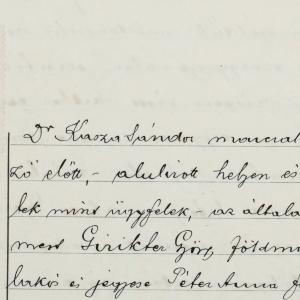 Dr Kasza Sándor
ző előtt, - alulirott helyen és
tek mint ügyfelek, - az általa
mert Girikter Györg földmü
lakós és jegyese Péter Anna f